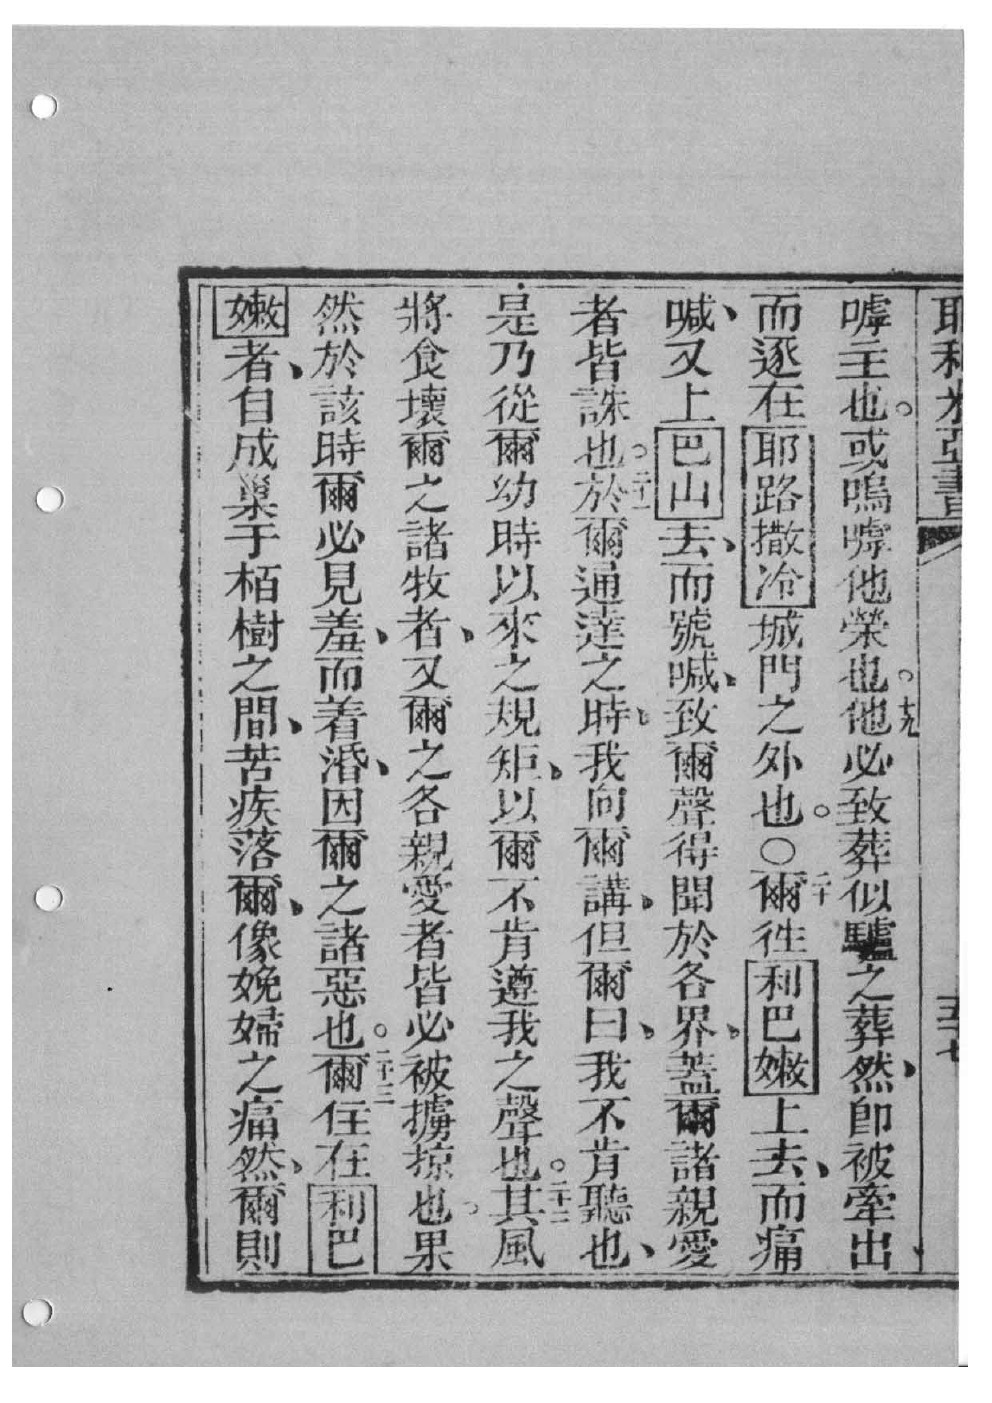 耶利米亞書 五十七
嘑主也。或嗚嘑他榮也。十九他必致葬似驢之葬、然卽被牽出、
而逐在耶路撒冷城門之外也。○二十爾徃利巴嫩上去、而痛
喊、又上巴山去、而號喊、致爾聲得聞於各界、葢爾諸親愛
者皆誅也。二十一於爾通達之時、我向爾講、但爾曰、我不肯聽也、
是乃從爾幼時以來之規矩、以爾不肯遵我之聲也。二十二其風
將食壞爾之諸牧者、又爾之各親愛者皆必被擄掠也。果
然於該時爾必見羞、而着湣、因爾之諸惡也。二十三爾住在利巴
嫩者、自成巢于栢樹之間、苦疾落爾、像娩婦之痛然、爾則